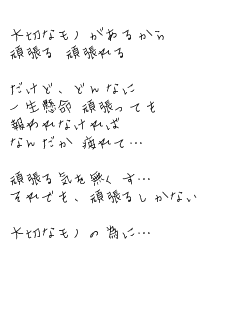 大切なモノがあるから
頑張る 頑張れる
だけど、どんなに
一生懸命 頑張っても
報われなければ
なんだか 疲れて…
頑張る気を無くす…
それでも、頑張るしかない
大切なモノの為に…